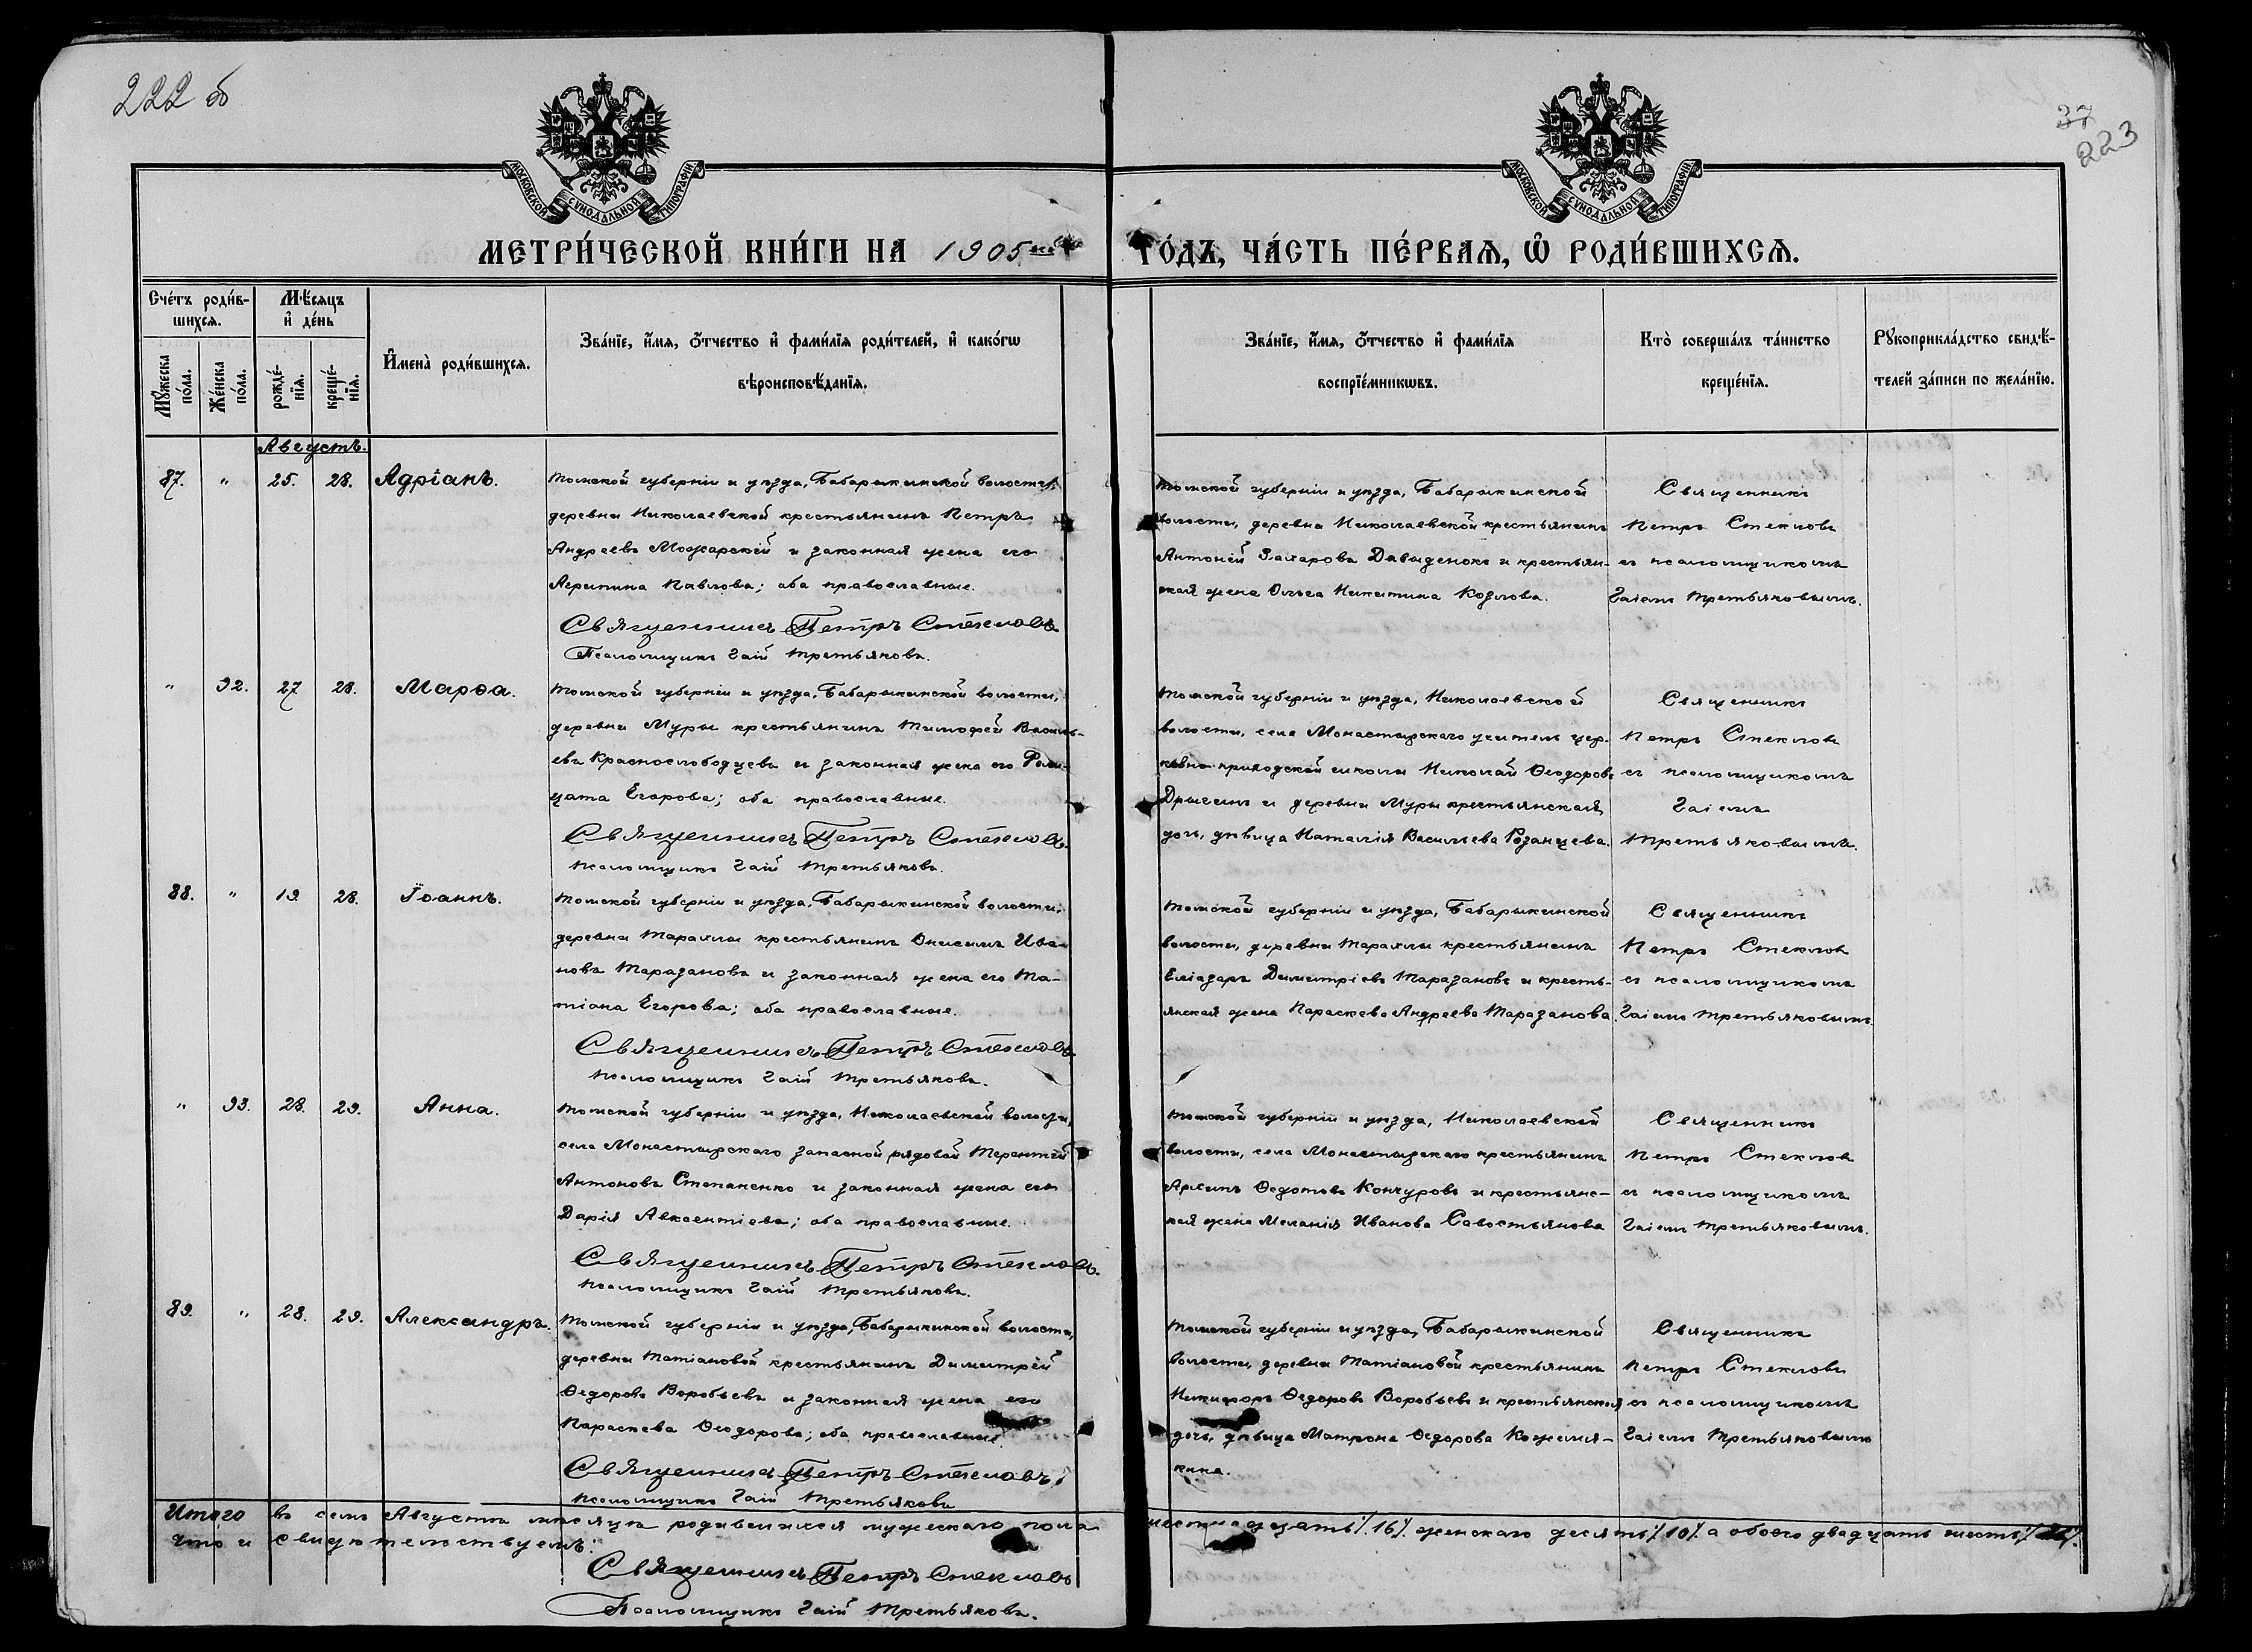 222 об
37
223
МОСКОВСКОЙ СѴНОДАЛЬНОЙ ТИПОГРАФІИ
МОСКОВСКОЙ СѴНОДАЛЬНОЙ ТИПОГРАФІИ
МЕТРИ́ЧЕСКОЙ КНИ́ГИ НА 1905
ГО́ДЪ, ЧА́СТЬ ПЕ́РВАѦ, Ѽ РОДИ́ВШИХСѦ.
Сче́тъ роди́в-
шихсѧ.
Мѣ́сяцъ
и҆ де́нь
Мꙋжеска
по́ла.
Же́нска
по́ла.
рожде́-
нїѧ.
креще́-
нїѧ.
И҆мена̀ роди́вшихсѧ.
Зва́нїе, и҆́мѧ, ѻ҆́тчество и҆ фами́лїѧ роди́телей, и҆ како́гѡ
вѣроисповѣ́данїѧ.
Зва́нїе, и҆́мѧ, ѻ҆́тчество и҆ фами́лїѧ
воспрїе́мникѡвъ.
Кто̀ соверша́лъ та́инство
креще́нїѧ.
Рꙋкоприкла́дство свидѣ́-
телей за́писи по жела́нїю.
Августъ.
87. " 25. 28. Адріанъ.
Томской губерніи и уѣзда, Бабарыкинской волости,
деревни Николаевской крестьянинъ Петръ
Андреевъ Можарскій и законная жена его
Агрипина Павлова; оба православные.
Священникъ Петръ Стекловъ
Псаломщикъ Гаій Третьяковъ.
Томской губерніи и уѣзда, Бабарыкинской
волости, деревни Николаевской крестьянинъ
Антоній Захаровъ Давыденокъ и крестьян-
ская жена Ольга Никитина Козлова.
Священникъ
Петръ Стекловъ
съ псаломщикомъ
Гаіемъ Третьяковымъ.
" 92. 27 28. Марѳа.
Томской губерніи и уѣзда, Бабарыкинской волости,
деревни Муры крестьянинъ Тимофей Василь-
евъ Краснослободцевъ и законная жена его
Егорова; оба православные.
Священникъ Петръ Стекловъ.
Псаломщикъ Гаій Третьяковъ.
Томской губерніи и уѣзда, Николаевской
волости, села Монастырскаго учитель цер-
ковно-приходской школы Николай Ѳеодоровъ
и деревни Муры крестьянская
дочь, дѣвица Наталія Васильева Розанцева.
Священникъ
Петръ Стекловъ
съ псаломщикомъ
Гаіемъ
Третьяковымъ.
88. " 19. 28. Іоаннъ.
Томской губерніи и уѣзда, Бабарыкинской волости,
деревни Тараклы крестьянинъ Онисимъ Ива-
новъ Таразановъ и законная жена его Та-
тіана Егорова; оба православные.
Священникъ Петръ Стекловъ
Псаломщикъ Гаій Третьяковъ.
Томской губерніи и уѣзда, Бабарыкинской
волости, деревни Тараклы крестьянинъ
Еліазаръ Димитріевъ Таразановъ и кресть-
янская жена Параскева Андреева Таразанова.
Священникъ
Петръ Стекловъ
съ псаломщикомъ
Гаіемъ Третьяковымъ.
" 93. 28. 29. Анна.
Томской губерніи и уѣзда, Николаевской волости,
села Монастырскаго запасной рядовой Терентій
Антоновъ Степаненко и законная жена его
Дарія Авксентіева; оба православные.
Священникъ Петръ Стекловъ.
Псаломщикъ Гаій Третьяковъ.
Томской губерніи и уѣзда, Николаевской
волости, села Монастырскаго крестьянинъ
Архипъ Ѳедотовъ Кончуровъ и крестьянс-
кая жена Меланія Иванова Савостьянова
Священникъ
Петръ Стекловъ
съ псаломщикомъ
Гаіемъ Третьяковымъ.
89. " 28. 29. Александръ.
Томской губерніи и уѣзда, Бабарыкинской волости,
деревни Татіановой крестьянинъ Димитрій
Ѳедоровъ Воробьевъ и законная жена его
Параскева Ѳеодорова; оба православные.
Священникъ Петръ Стекловъ
Псаломщикъ Гаій Третьяковъ
Томской губерніи и уѣзда, Бабарыкинской
волости, деревни Татіановой крестьянинъ
Никифоръ Ѳедоровъ Воробьевъ и крестьянская
дочь, дѣвица Матрона Ѳедорова Кожемя-
кина.
Священникъ
Петръ Стекловъ
съ псаломщикомъ
Гаіемъ Третьяковымъ
Итого въ семъ Августѣ мѣсяцѣ родившихся мужескаго пола шестнадцать /16/. женскаго десять /10/. а обоего двадцать шесть /26/.
Что и свидѣтельствуемъ:
Священникъ Петръ Стекловъ
Псаломщикъ Гаій Третьяковъ.